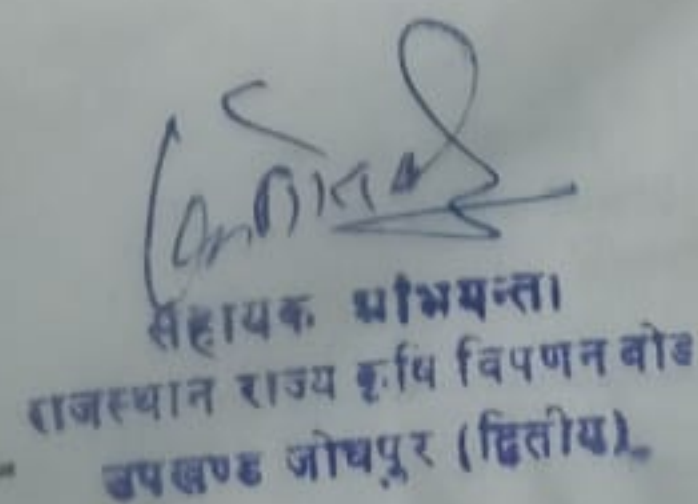 सहायक अभियन्ता
राजस्थान राज्य कृषि विपणन बोर्ड
उपखण्ड जोधपुर (द्वितीय)